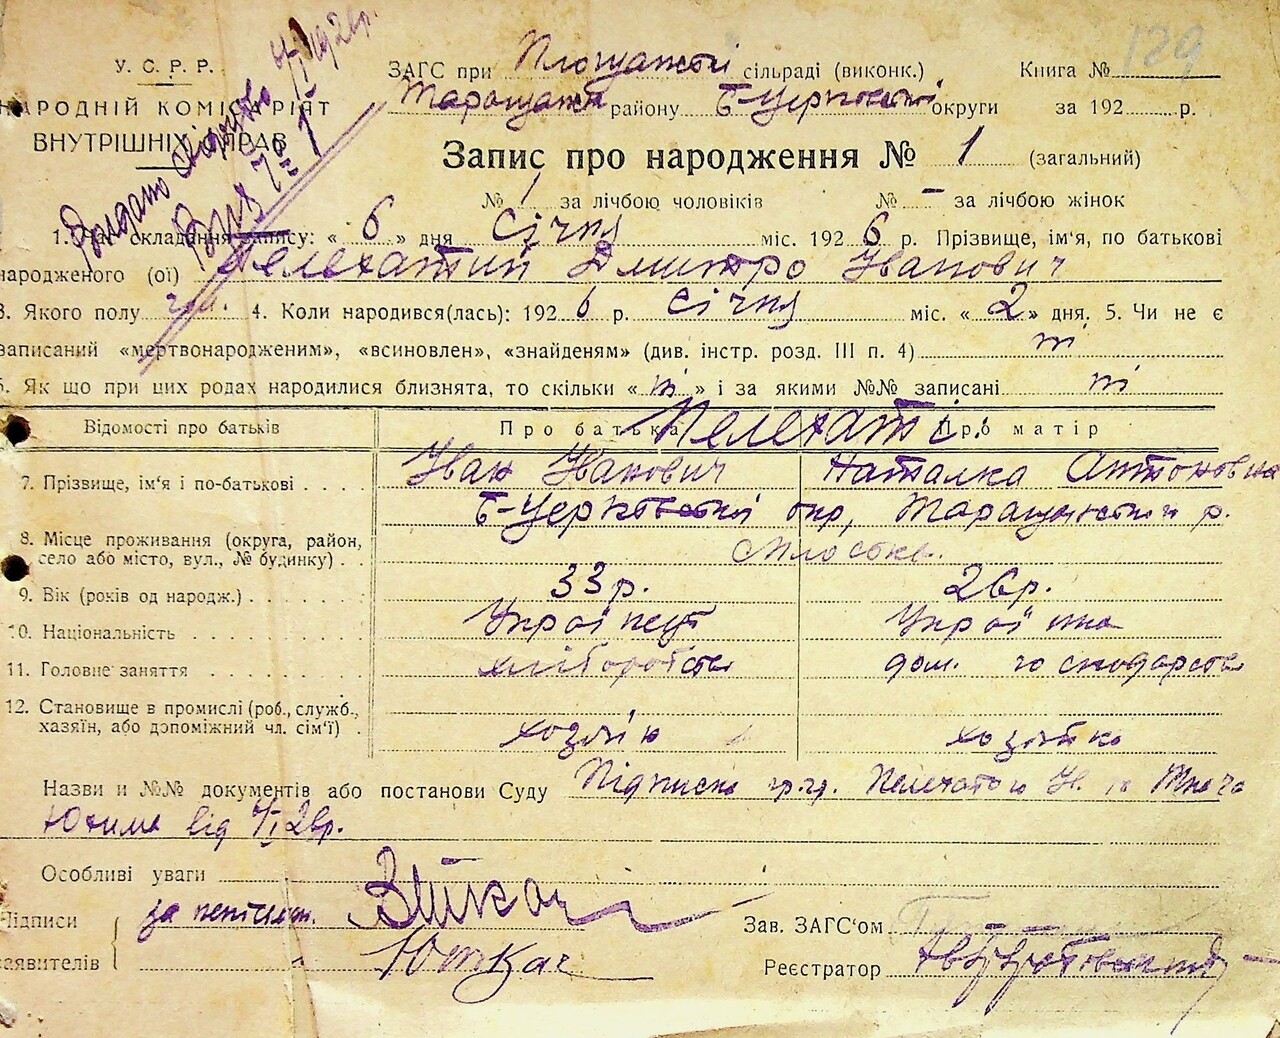 129
У. С. Р. Р.
НАРОДНІЙ КОМІСАРІЯТ
ВНУТРІШНІХ СПРАВ
Видано
ЗАГС при сільраді (виконк.) Книга №
району Б-Церківської округи за 192 р.
Запис про народження № 1 (загальний)
№ 1 за лічбою чоловіків № – за лічбою жінок
1. Час складання запису: « 6 » дня Січня міс. 192 6 р. Прізвище, ім'я, по батькові
народженого (ої) Пелехатий Дмитро Іванович
3. Якого полу 4. Коли народився(лась): 192 6 р. Січня міс. « 2 » дня. 5. Чи не є
записаний «мертвонародженим», «всиновлен», «знайденям» (див. інстр. розд. III п. 4) ні
6. Як що при цих родах народилися близнята, то скільки « ні » і за якими №№ записані ні
Відомості про батьків Про батька Пелехаті Про матір
7. Прізвище, ім'я і по-батькові Іван Іванович Наталка Антоновна
Б-Церківської окр, Таращанськ р.
8. Місце проживання (округа, район,
село або місто, вул., № будинку)
9. Вік (років од народж.) 33 р. 26 р.
10. Національність Українець Українка
11. Головне заняття хліборобство дом. господарство
12. Становище в промислі (роб., служб.,
хазяїн, або допоміжний чл. сім'ї) хозяїн хозяйка
Назви и №№ документів або постанови Суду Підписка гр.гр. Пелехатого Ів. та Ткача
Юхима від 6/I 26р.
Особливі уваги
Підписи за неписьм. Ткач
заявителів Ю Ткач
Зав. ЗАГС'ом
Реєстратор